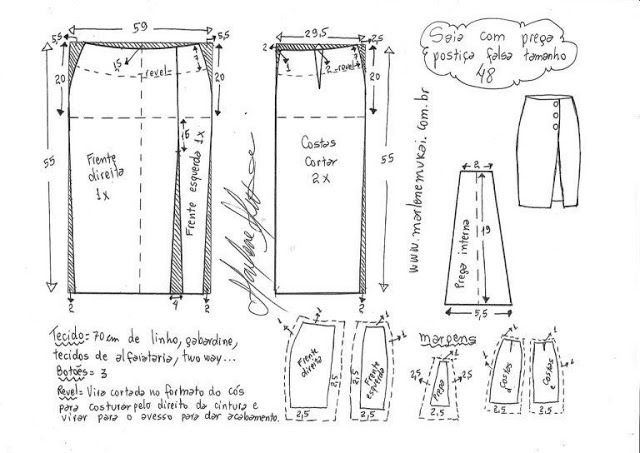 59
5,5
5,5
20
20
55
1,5
revel
15
Frente
direita
1x
Frente esquerda 1x
2
4
2
29,5
2
2,5
1
2
revel
20
55
Costas
Cortar
2x
2
Saia com prega
postiça falsa tamanho
48
www.marlenemukai.com.br
2
Prega interna
19
5,5
Tecido= 70cm de linho, gabardine,
tecidos de alfaiataria, two way...
Botões= 3
Revel= Vira cortada no formato do cós
para costurar pelo direito da cintura e
virar para o avesso para dar acabamento.
1
1
Frente
direita
2,5
2,5
1
1
Frente
esquerda
2,5
2,5
margens
1
Prega
2,5
2,5
2,5
1
Costas
d
2,5
1
Costas
e
2,5